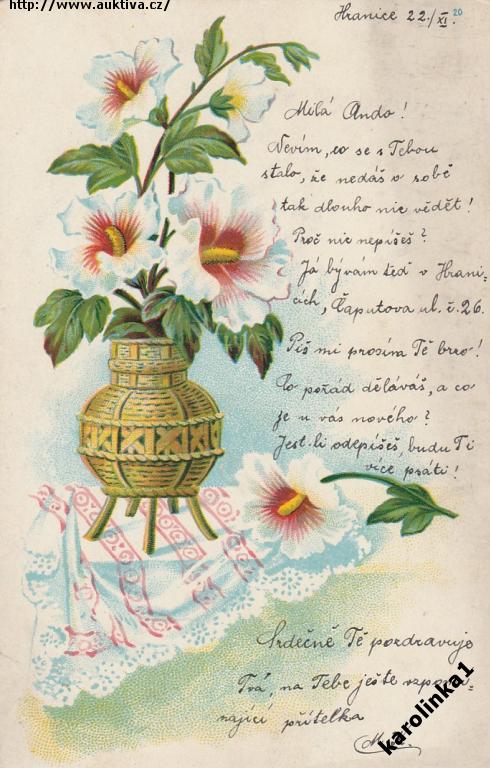 http://www.auktiva.cz/
Hranice 22./XI. 20
Milá Ando!
Nevím, co se s Tebou
stalo, že nedáš o sobě
tak dlouho nic vědět!
Proč nic nepíšeš?
Já bývám teď v Hrani-
cích, Čaputova ul. č. 26.
Piš mi prosím Tě brzo!
Co pořád děláváš, a co
je u vás nového?
Jest-li odepíšeš, budu Ti
více psáti!
Srdečně Tě pozdravuje
Tvá, na Tebe ješte vzpomí-
nající přítelka
karolinka1